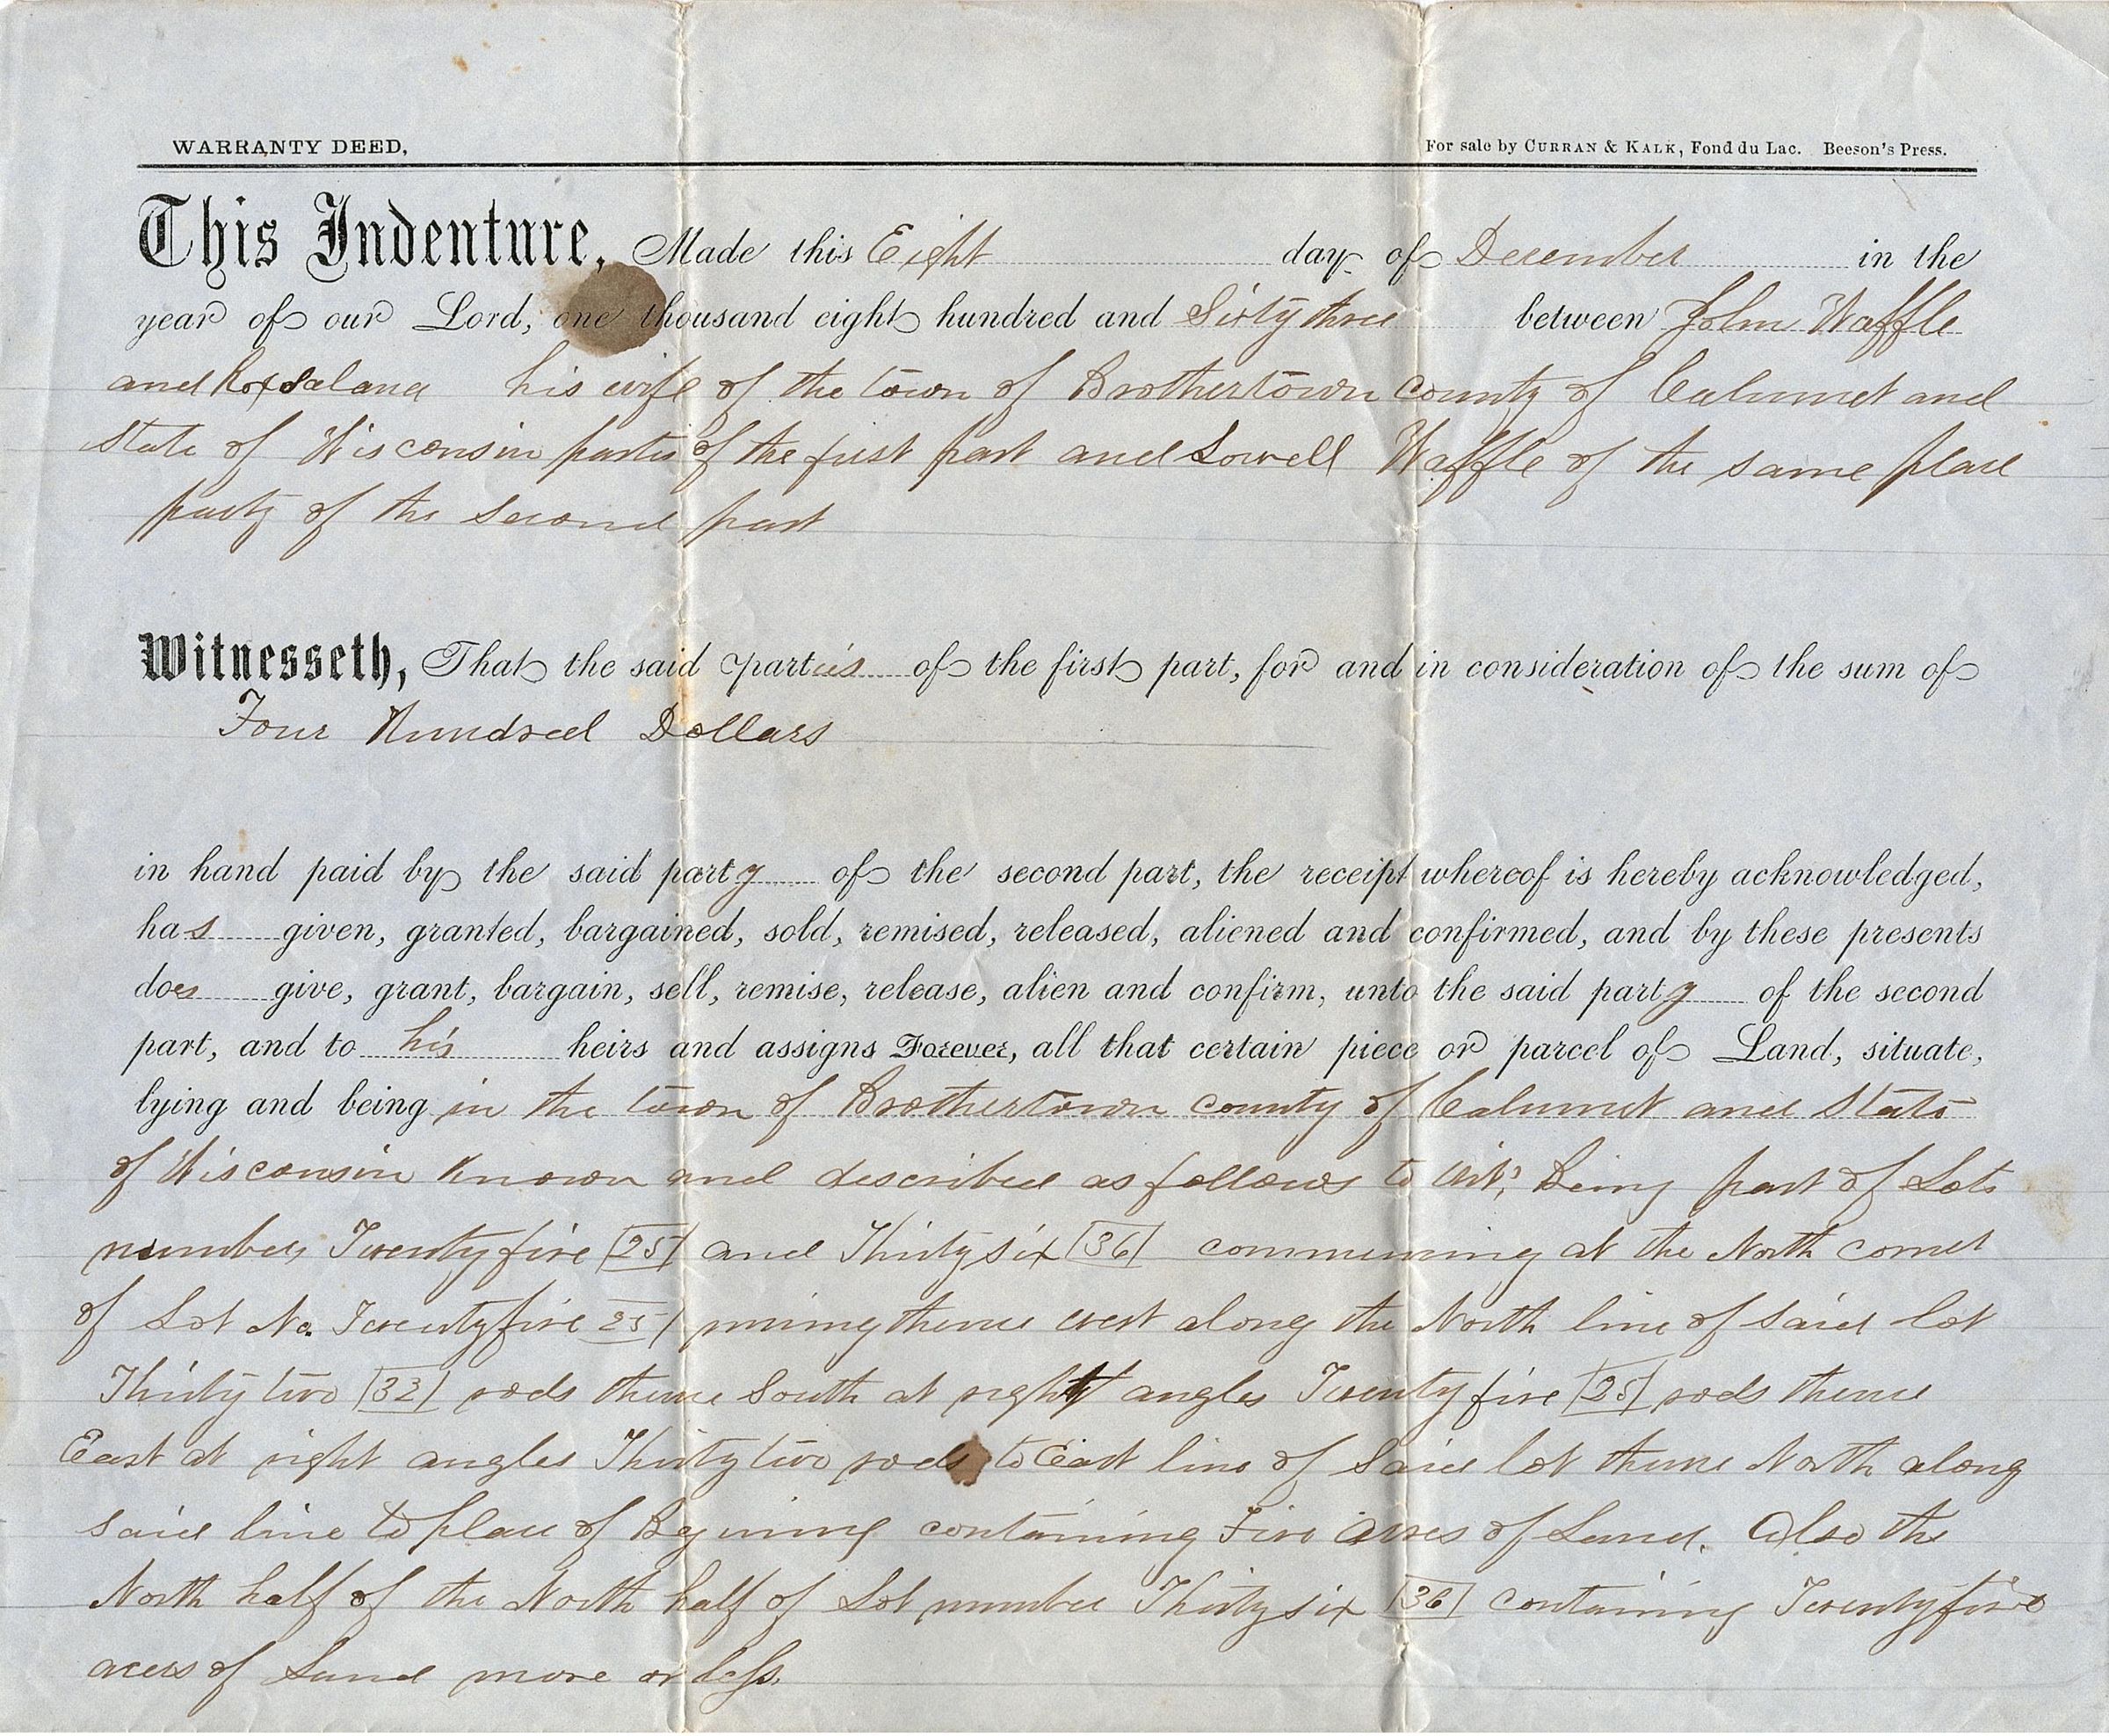 WARRANTY DEED,
For sale by CURRAN & KALK, Fond du Lac. Beeson's Press.
This Indenture, Made this Eight day of December in the
year of our Lord, one thousand eight hundred and Sixty three between John Waffle
and Roxsalana his wife of the town of Brothertown county of Calumet and
State of Wisconsin parties of the first part and Lowell Waffle of the same place
party of the second part
Witnesseth, That the said parties of the first part, for and in consideration of the sum of
Four Hundred Dollars
in hand paid by the said party of the second part, the receipt whereof is hereby acknowledged,
has given, granted, bargained, sold, remised, released, aliened and confirmed, and by these presents
does give, grant, bargain, sell, remise, release, alien and confirm, unto the said party of the second
part, and to his heirs and assigns Forever, all that certain piece or parcel of Land, situate,
lying and being in the town of Brothertown county of Calumet and State
of Wisconsin Known and described as follows to wit; Being part of Lots
number Twenty five |25| and Thirty six |36| commencing at the North corner
of Lot No. Twenty five 25| runing thence west along the North line of said lot
Thirty two |32| rods thence South at right angles Twenty five |25| rods thence
East at right angles Thirty two rods to East line of Said lot thence North along
said line to place of Begining containing Five Acres of Land. Also the
North half of the North half of Lot number Thirty six |36| containing Twenty five
acers of Land more or less.